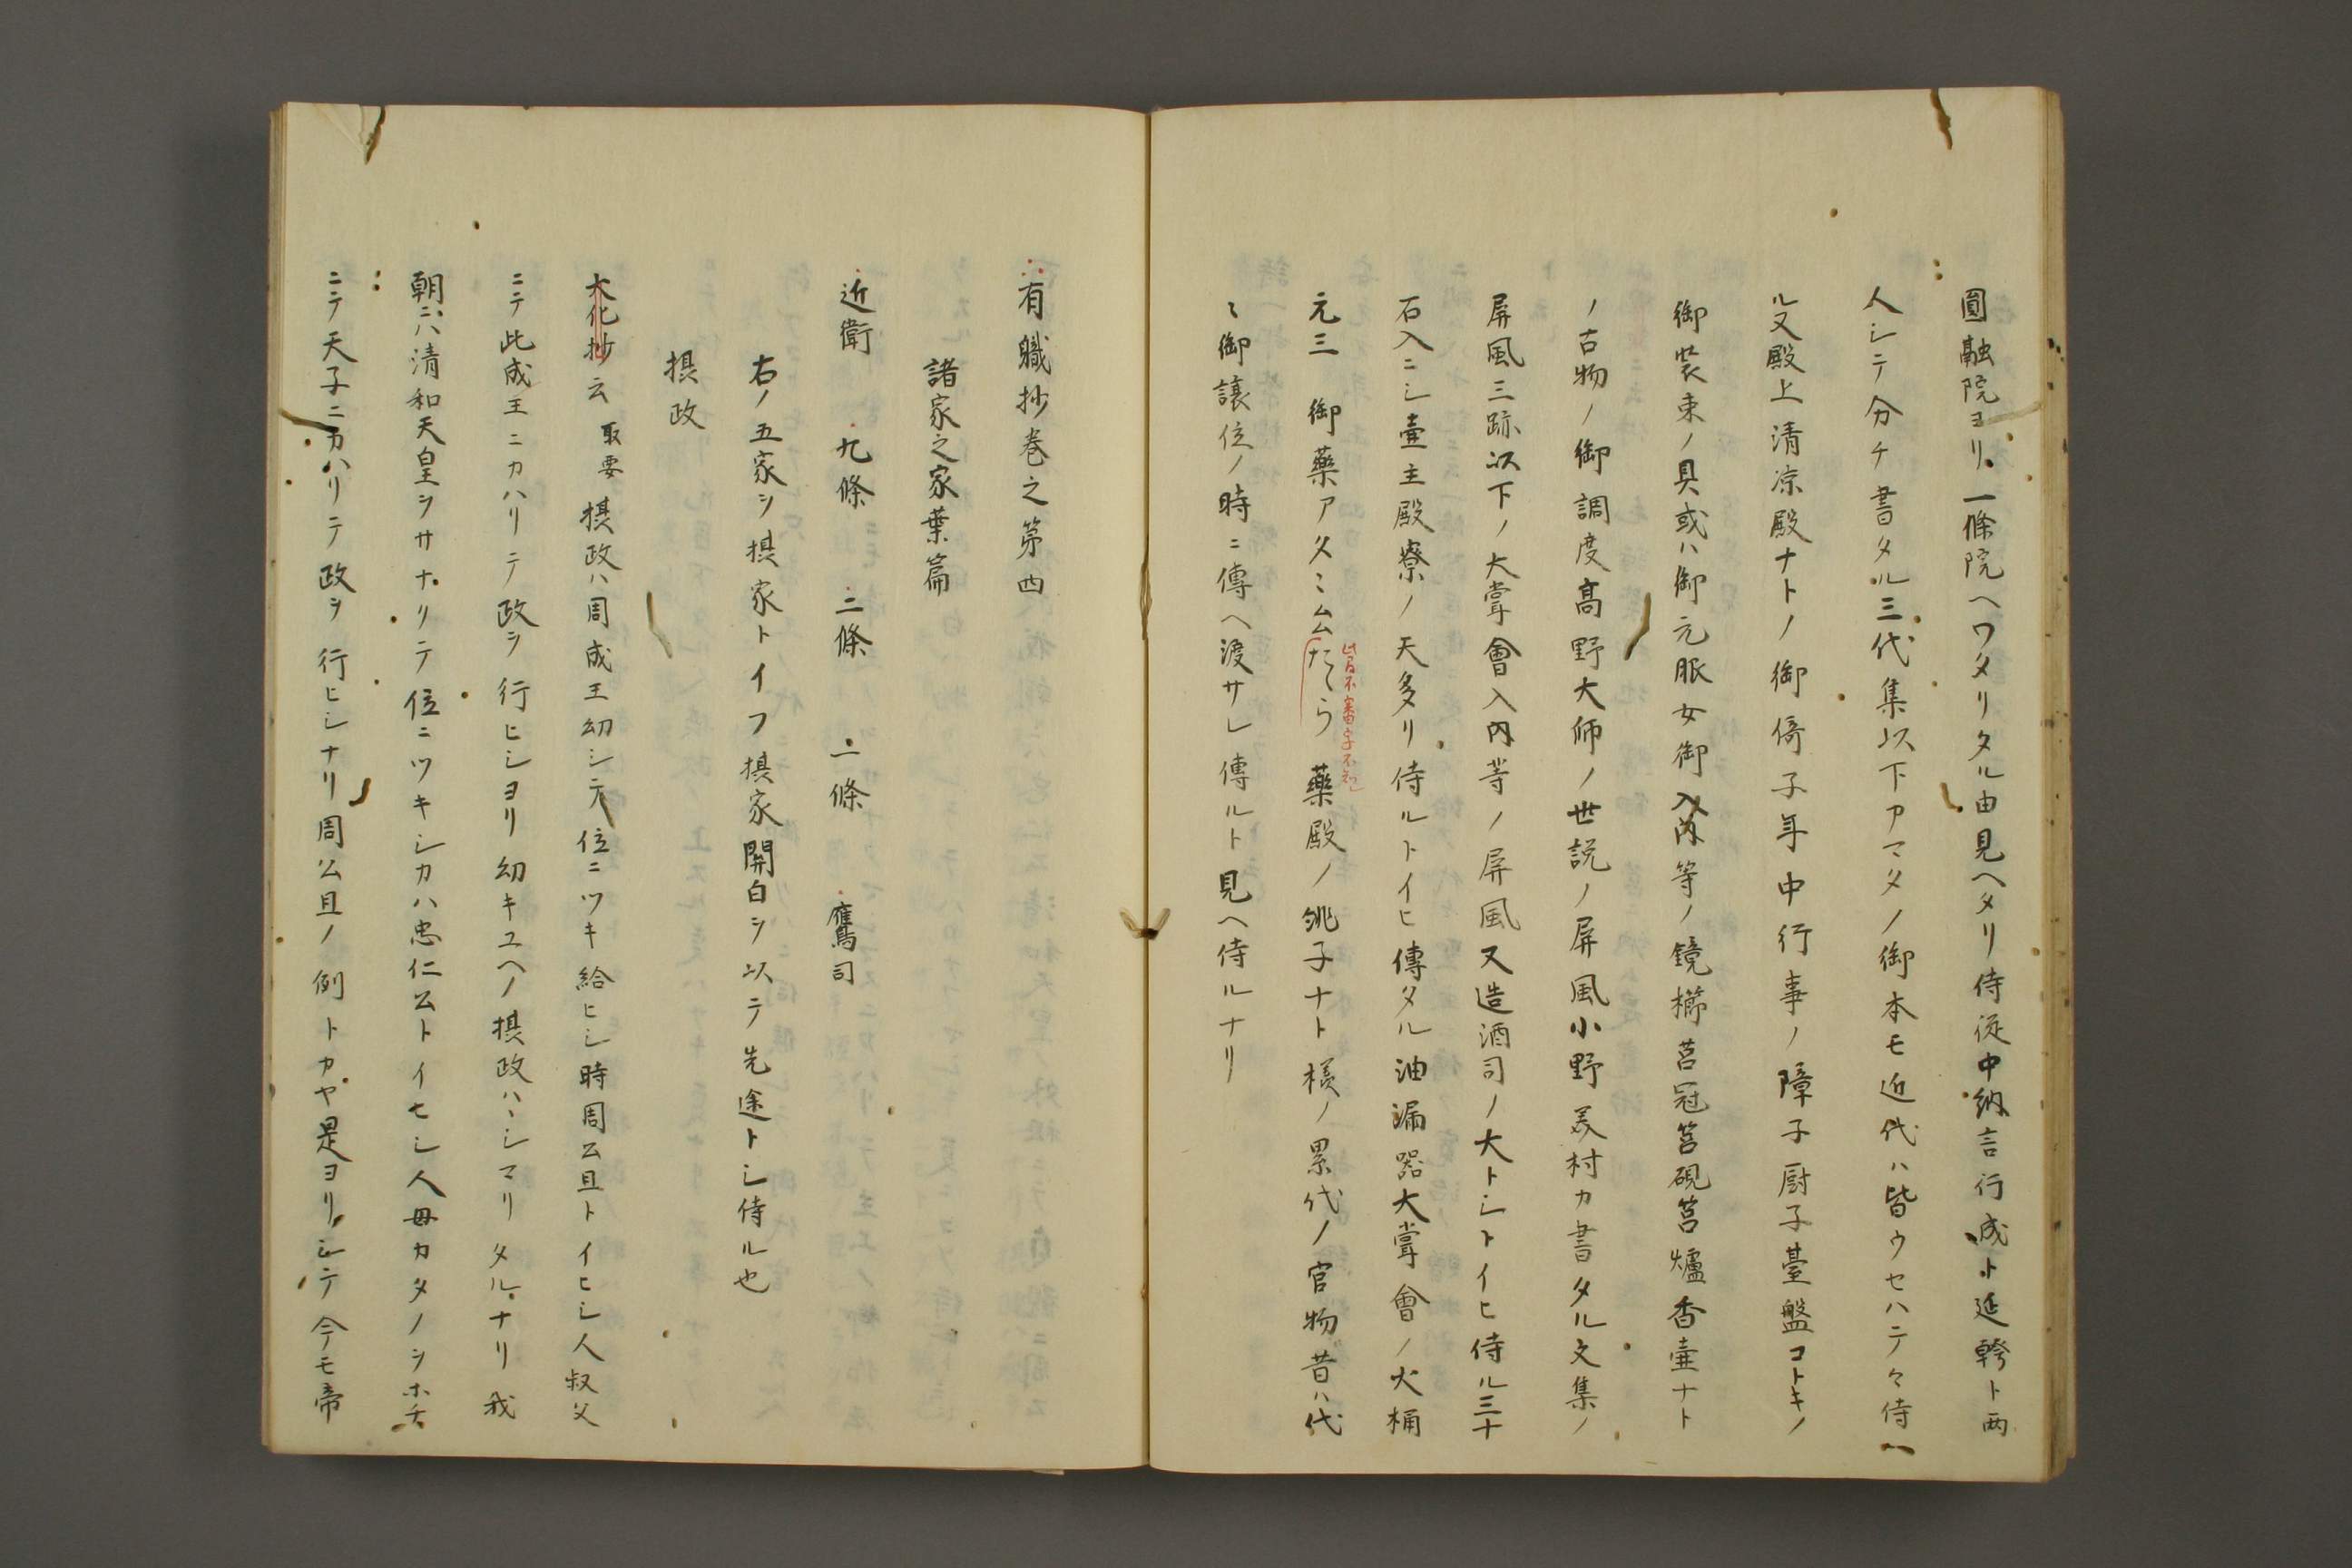 圓融院ヨリ一條院ヘワタリタル由見ヘタリ侍從中納言行成ト延幹ト両
人シテ分チ書タル三代集以下アマタノ御本モ近代ハ皆ウセハテヽ侍ヘ
ル又殿上清涼殿ナトノ御倚子年中行事ノ障子厨子臺盤コトキノ
御裝束ノ具或ハ御元服女御入内等ノ鏡櫛莒冠筥硯筥爐香壷ナト
ノ古物ノ御調度髙野大師ノ世説ノ屏風小野美村カ書タル文集ノ
屏風三跡以下ノ大嘗會入内等ノ屏風又造酒司ノ大トシトイヒ侍ル三十
石入ニシ壷主殿寮ノ天多リ侍ルトイヒ傳タル油漏器大嘗會ノ火桶
元三 御藥アタヽムたゝら 藥殿ノ銚子ナト様ノ累代ノ官物昔ハ代
皆不審字不知
ヽ御譲位ノ時ニ傳ヘ渡サレ傳ルト見ヘ侍ルナリ
有職抄巻之第四
諸家之家業篇
近衛 九條 二條 一條 鷹司
右ノ五家ヲ摂家トイフ摂家関白ヲ以テ先途トシ侍ル也
摂政
大化抄云 取要 摂政ハ周成王幼シテ位ニツキ給ヒシ時周公旦トイヒシ人叔父
ニテ此成王ニカハリテ政ヲ行ヒシヨリ幼キユヘノ摂政ハシマリタルナリ我
朝ニハ清和天皇ヲサナリテ位ニツキシカハ忠仁公トイヒシ人母カタノヲホチ
ニテ天子ニカハリテ政ヲ行ヒシナリ周公旦ノ例トカヤ是ヨリシテ今モ帝